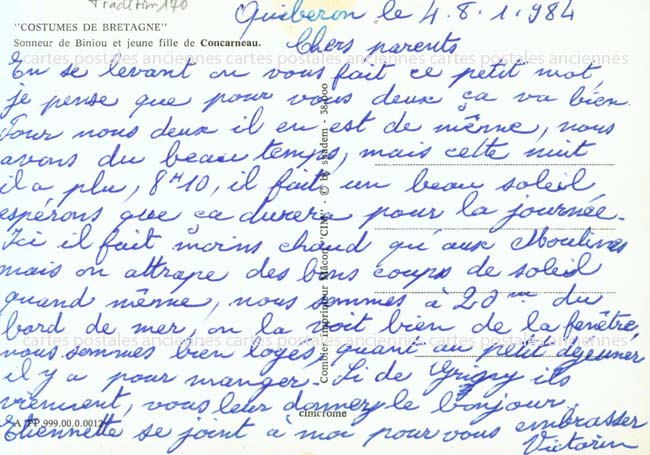 Tradition 170
"COSTUMES DE BRETAGNE"
Sonneur de Biniou et jeune fille de Concarneau.
Quiberon le 4.8.1.984
Chers parents
En se levant on vous fait ce petit mot,
je pense que pour vous deux ça va bien.
Pour nous deux il en est de même, nous
avons du beau temps, mais cette nuit
il a plu, 8H10, il fait un beau soleil
espérons que ça durera pour la journée.
Ici il fait moins chaud qu'aux Moulines
mais on attrape des bons coups de soleil
quand même, nous sommes à 20 du
bord de mer, on la voit bien de la fenêtre,
nous sommes bien logés, quant au petit déjeuner
il y a pour manger. Si de Grigny ils
viennent, vous leur donnez le bonjour.
Etiennette se joint à moi pour vous embrasser
Victorin
Combier imprimeur Mâcon "CIM" - © by spadem - 38.000
cimcrome
999.00.0.0012
cartes postales anciennes cartes postales anciennes cartes postales anciennes
cartes postales anciennes cartes postales anciennes cartes postales anciennes